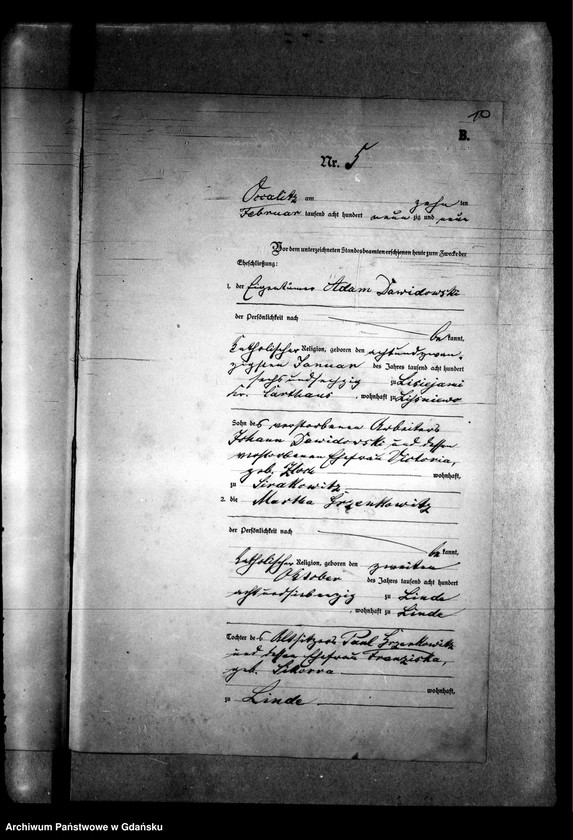 10
B.
Nr. 5
Occalitz am zehn ten
Februar tausend acht hundert neun zig und neun
Vor dem unterzeichneten Standesbeamten erschienen heute zum Zwecke der
Eheschließung:
1. der Eigentümer Adam Dawidowski
der Persönlichkeit nach
be kannt,
katholischer Religion, geboren den achtundzwan-
zigsten Januar des Jahres tausend acht hundert
sechsundsechzig zu
Kr. Carthaus, wohnhaft zu Lissniewo
Sohn des verstorbenen Arbeiters
Johann Dawidowski und dessen
verstorbenen Ehefrau Victoria,
geb. wohnhaft,
zu Sirakowitz
2. die Martha Grzenkowitz
der Persönlichkeit nach
be kannt,
katholischer Religion, geboren den zweiten
Oktober des Jahres tausend acht hundert
achtundsiebenzig zu Linde
, wohnhaft zu Linde
Tochter des Altsitzers Paul Grzenkowitz
und dessen Ehefrau Franziska,
geb. Sikorra
wohnhaft,
zu Linde
Archiwum Państwowe w Gdańsku